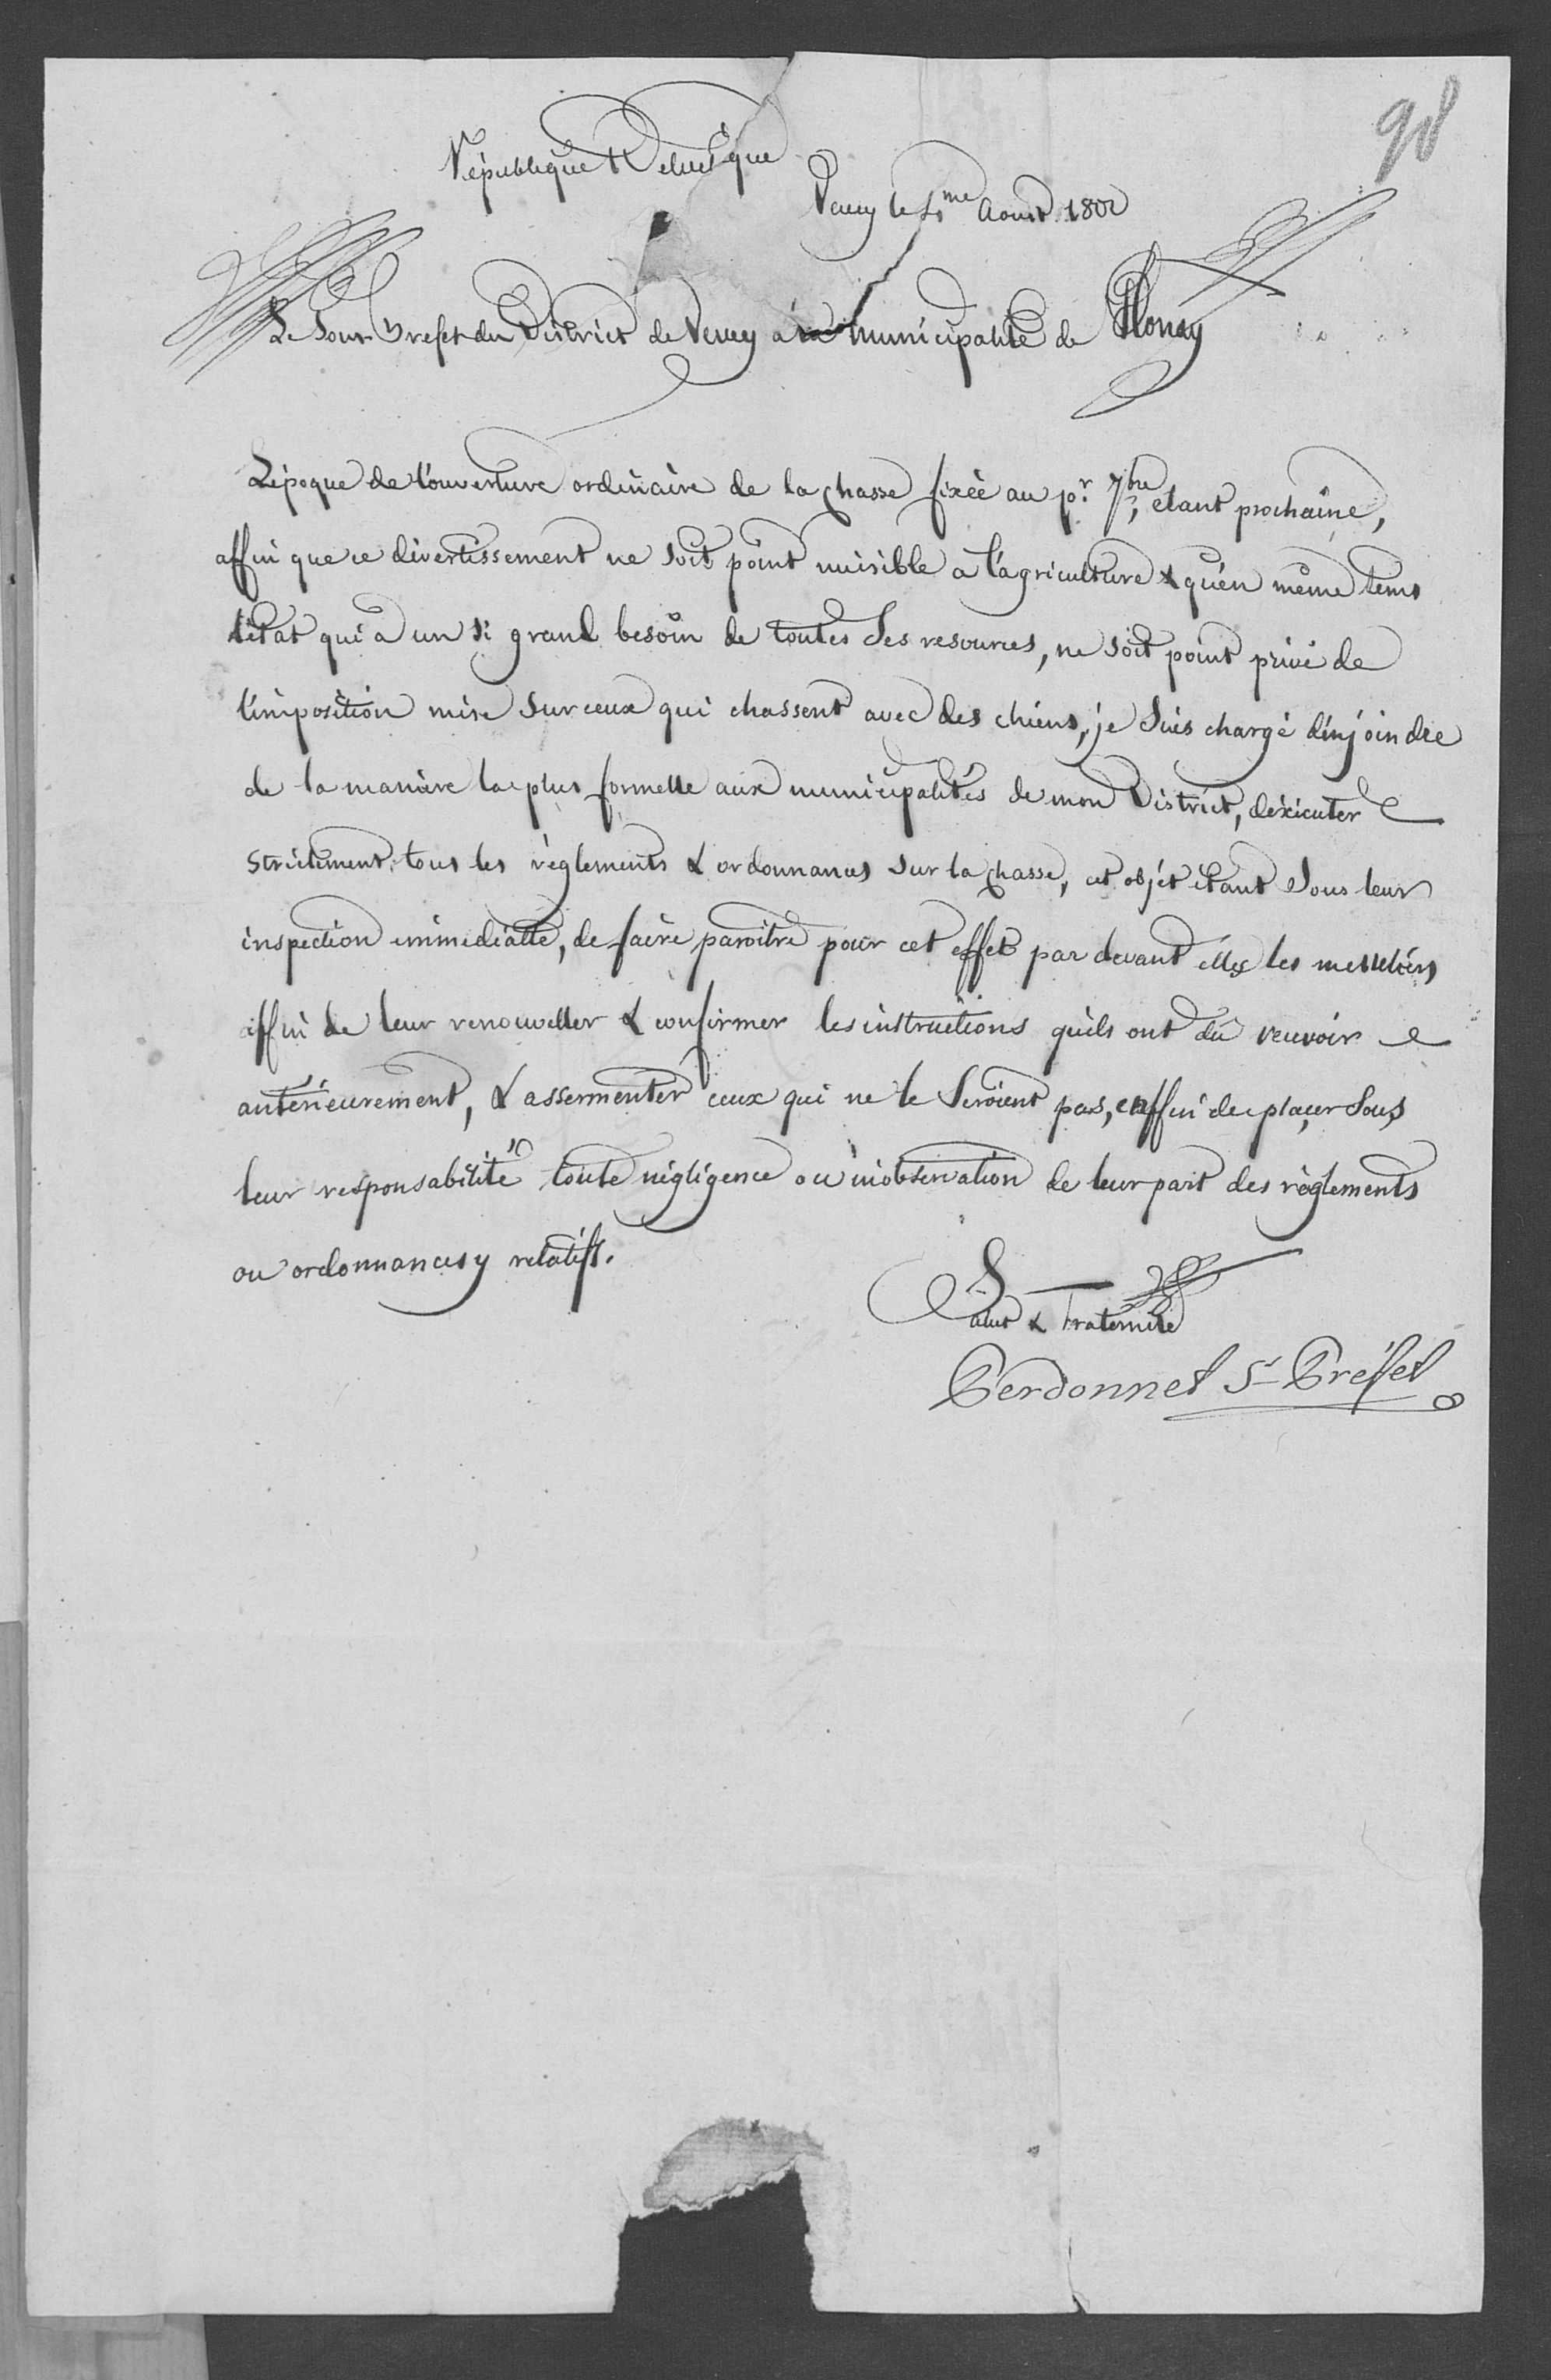 98
République Helvétique
Vevey le me Aoust 1802
Le Sous Préfet du District de Vevey à la municipalité de Blonay
L'époque de l'ouverture ordinaire de la chasse fixée au pr. 7bre, étant prochaine,
affin que ce divertissement ne soit point nuisible a l'agriculture & qu'en même tems
l'état qui a un si grand besoin de toutes ses resources, ne soit point privé de
l'imposition mise sur ceux qui chassent avec des chiens, je suis chargé d'enjoindre
de la maniere la plus formelle aux municipalités de mon District, d'exécuter
strictement tous les règlements & ordonnances sur la chasse, cet objet étant sous leur
inspection immediatte, de faire paroitre pour cet effet par devant elles les messeliers
affin de leur renouveller & confirmer les instructions qu'ils ont dû recevoir
antérieurement, & assermenter ceux qui ne le seroient pas, enffin de placer sous
leur responsabilité toute négligence ou inobservation de leur part des règlements
ou ordonnances y relatifs.
Salut & Fraternité
Perdonnet Ss Préfet